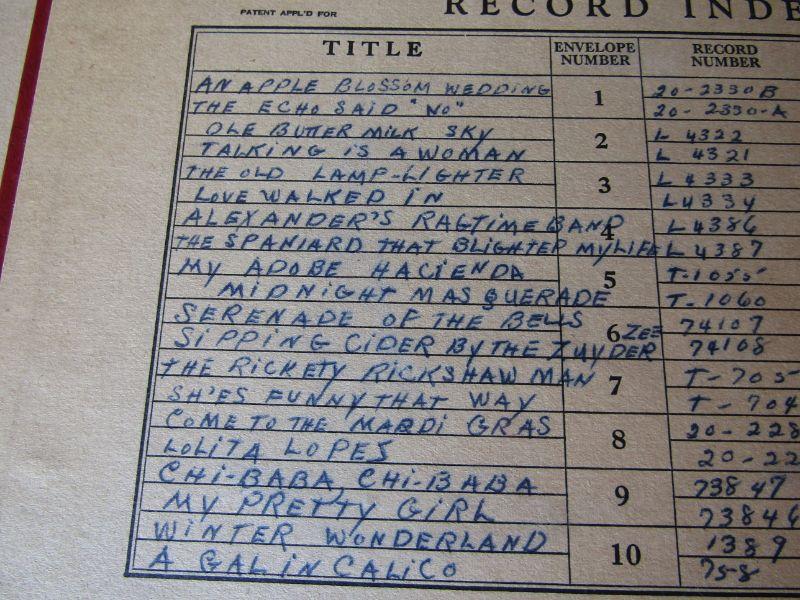 PATENT APPL'D FOR
RECORD INDE
TITLE ENVELOPE NUMBER RECORD NUMBER
AN APPLE BLOSSOM WEDDING 1 20-2330 B
THE ECHO SAID "NO" 20-2330-A
OLE BUTTER MILK SKY 2 L 4322
TALKING IS A WOMAN L 4321
THE OLD LAMP-LIGHTER 3 L 4333
LOVE WALKED IN L4334
ALEXANDER'S RAGTIME BAND 4 L 4386
THE SPANIARD THAT BLIGHTED MY LIFE L 4387
MY ADOBE HACIENDA 5 T-1055
MIDNIGHT MASQUERADE T-1060
SERENADE OF THE BELLS 6 74107
SIPPING CIDER BY THE ZUYDER ZEE 74108
THE RICKETY RICKSHAW MAN 7 T-705
SH'ES FUNNY THAT WAY T-704
COME TO THE MARDI GRAS 8 20-228
LOLITA LOPES 20-22
CHI-BABA, CHI-BABA 9 73847
MY PRETTY GIRL 73846
WINTER WONDERLAND 10 1389
A GAL IN CALICO 758